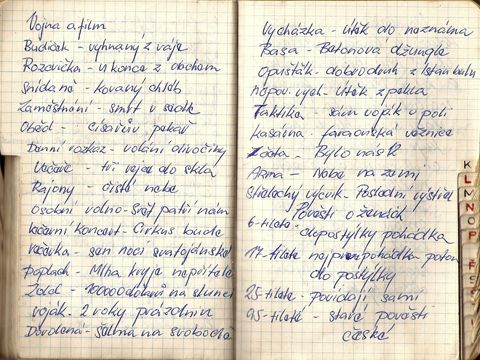 Vojna a film
Budíček - vyhnaný z ráje
Rozcvička - u konce s dechem
Snídaně - kovaný chléb
Zaměstnání - smrt v sedle
Oběd - císařův pekař
Denní rozkaz - volání divočiny
Večeře - tři vejce do skla
Rajony - čisté nebe
osobní volno - Svět patří nám
večerní koncert - Cirkus bude
večerka - sen noci svatojánské
Poplach - Mlha kryje nepřítele
Žold - 1000000 dolarů na slunci
voják - 2 roky prázdnin
Dovolená - šelma na svobodě
Vycházka - Útěk do neznáma
Basa - Betonová džungle
Opušťák - dobrodruh z Istanbulu
Útěk z pekla
Taktika - sám voják v poli
kasárna - faraonská věznice
četa - Bylo nás
Nebe na zemi
Střelecký výcvik - Poslední výstřel
Pověsti o ženách
6-tiletá - do postýlky pohádka
17-tiletá nejprve pohádka potom
do postýlky
25-tiletá - povídají samy
95-tiletá - staré pověsti
české
K
L
M
N
O
P